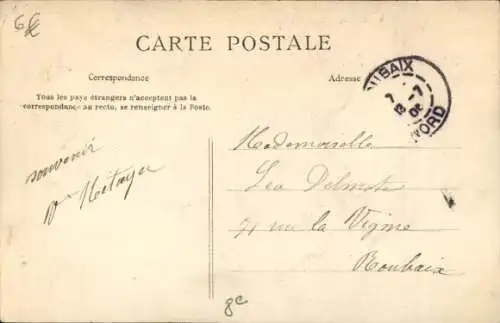 CARTE POSTALE
Correspondance
Adresse
Tous les pays étrangers n'acceptent pas la
correspondance au recto, se renseigner à la Poste.
ROUBAIX
NORD
souvenir
Mademoiselle
Léa Delmotte
71 rue la Vigne
Roubaix